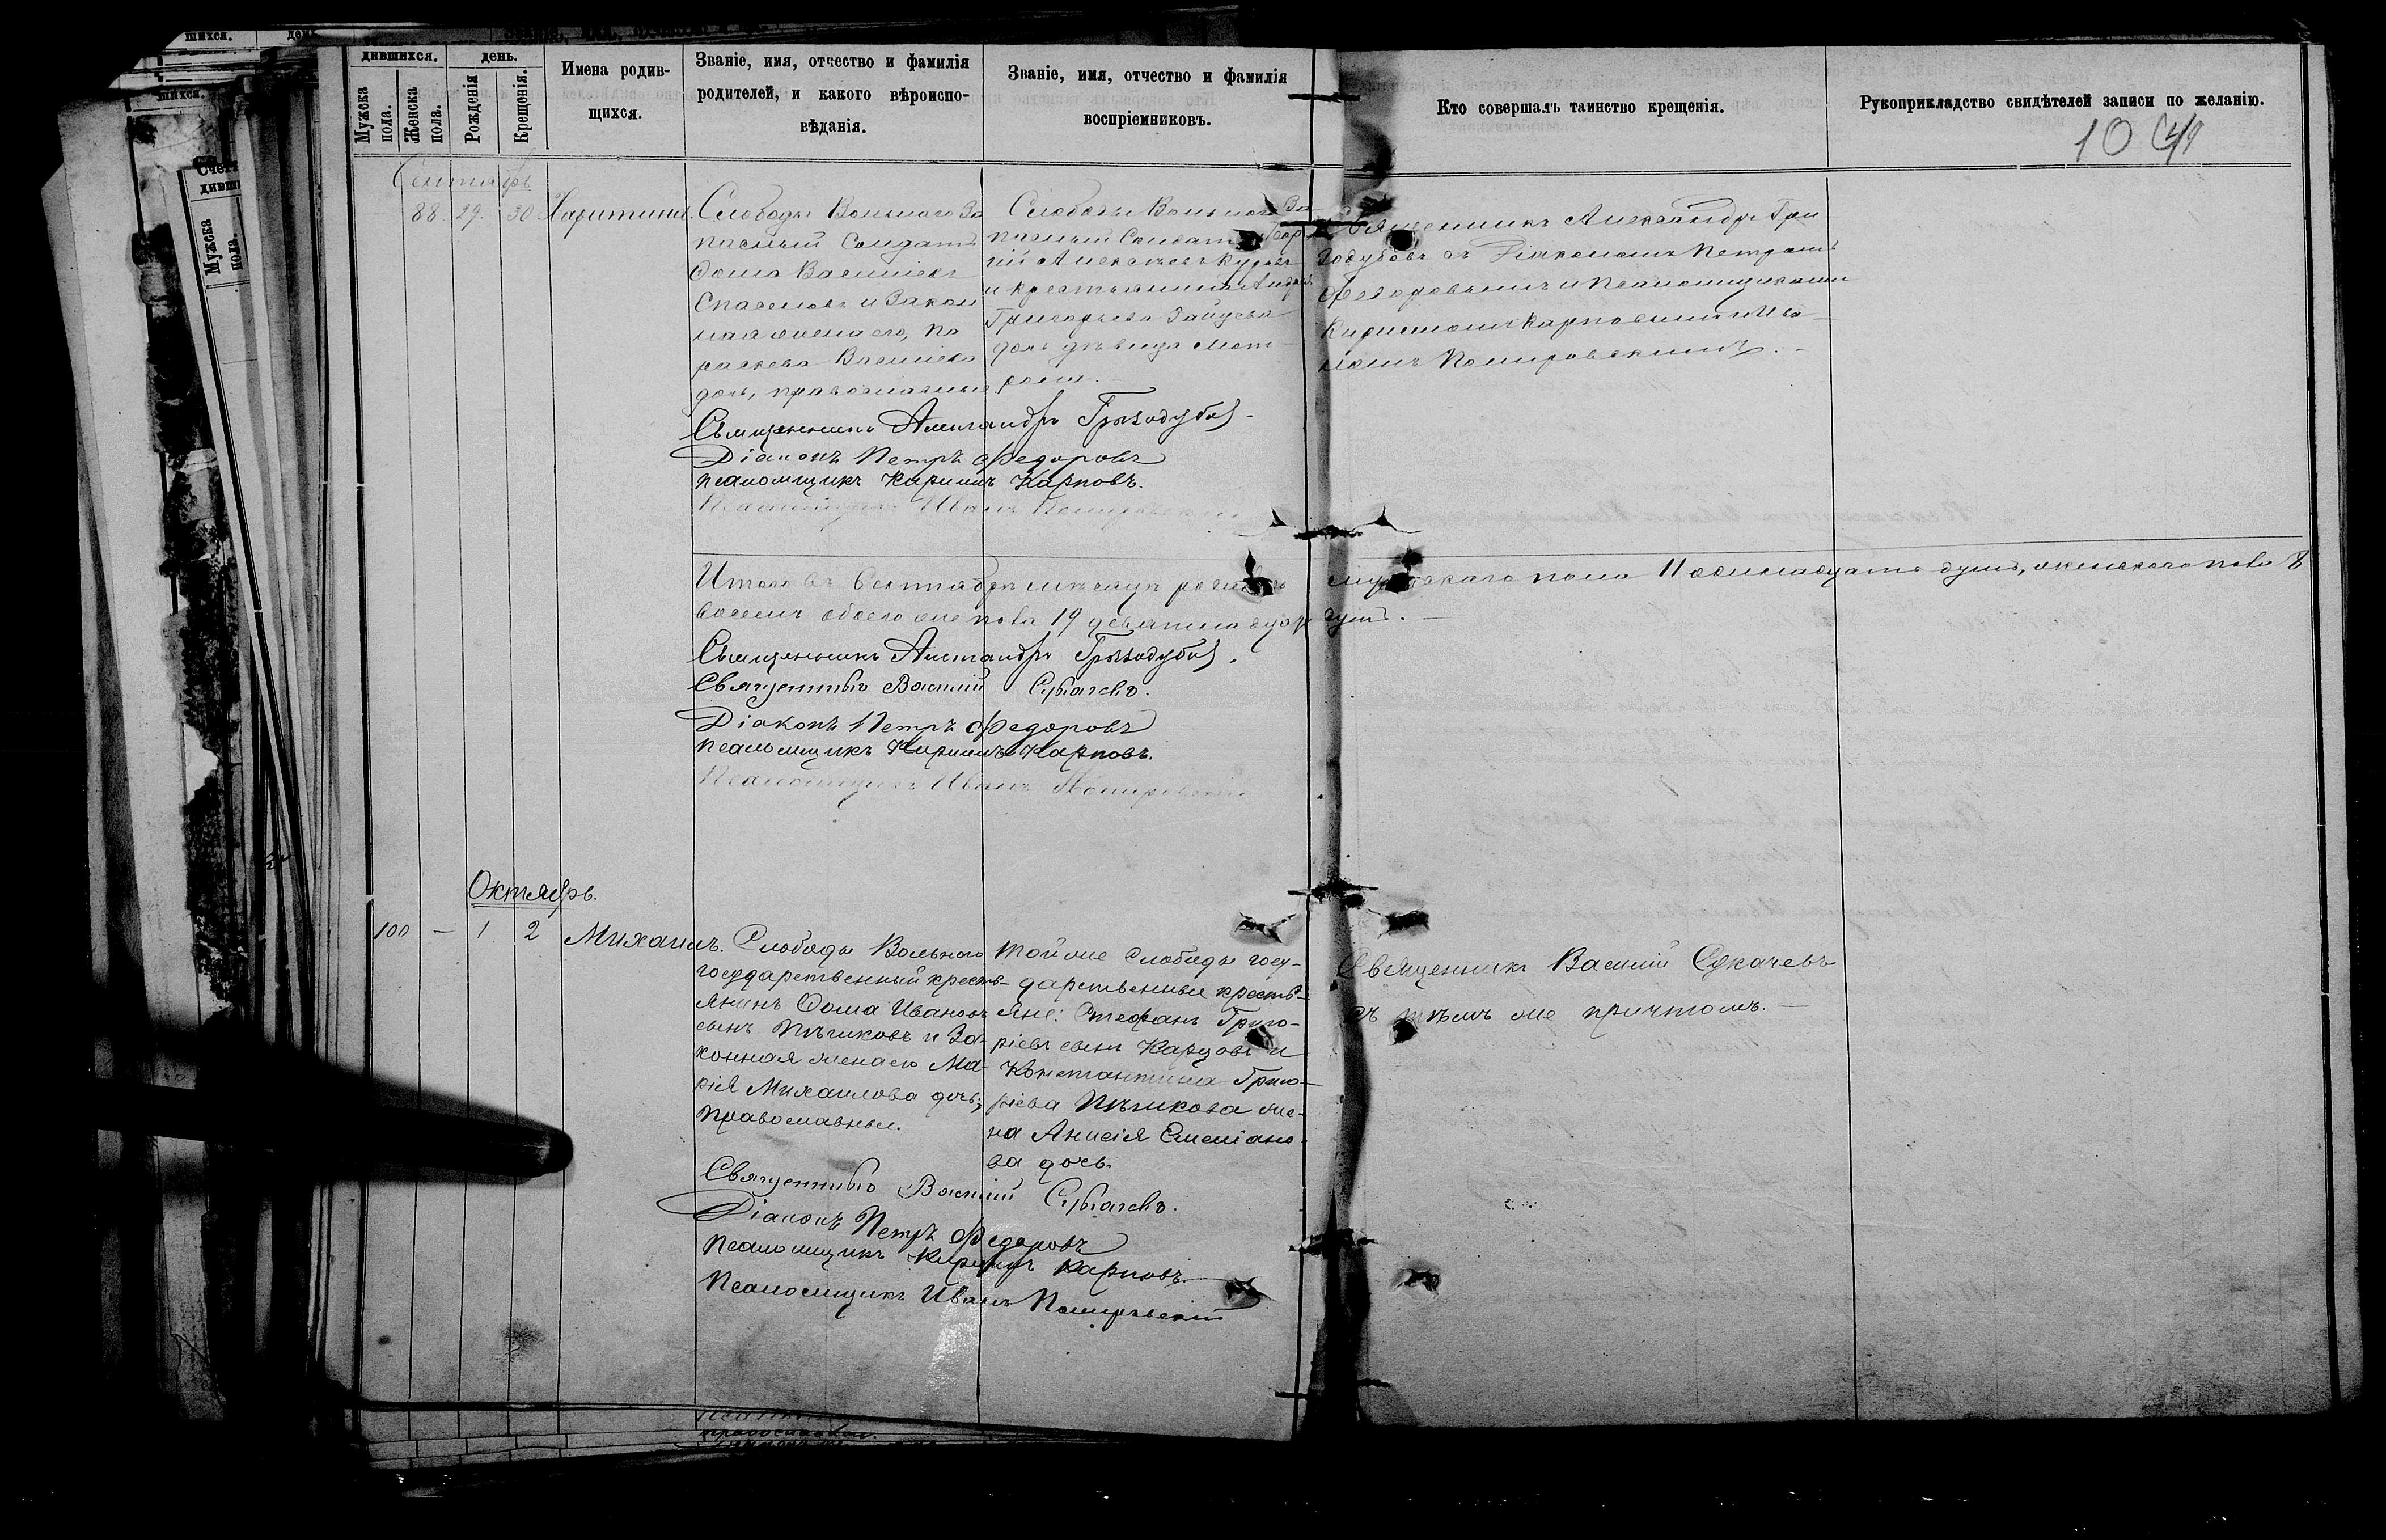 дившихся.
день.
Мужска пола.
Женска пола.
Рожденія
Крещенія.
Имена родив-
щихся.
Званіе, имя, отчество и фамилія
родителей, и какого вѣроиспо-
вѣданія.
Званіе, имя, отчество и фамилія
воспріемниковъ.
Кто совершалъ таинство крещенія.
Рукоприкладство свидѣтелей записи по желанію.
Сентябрь
88 29 30 Харитина.
Слободы Вольнаго За
пасный Солдатъ
Ѳома Василіевъ
и Закон
ная жена его, Па
раскева Василіева
дочь, православные
Слободы Вольнаго За
пасный Солдатъ Геор
гій
и крестьянина
Григорьева Зайцева
дочь дѣвица Мат
рона.
Священникъ Александръ Гри
зодубовъ съ Діакономъ Петромъ
Ѳедоровымъ и Псаломщиками
Кирилломъ Карповымъ и Ива
номъ
Священникъ Александръ Гризодубовъ
Діаконъ Петръ Ѳедоровъ
Псаломщикъ Кириллъ Карповъ.
Псаломщикъ Иванъ
Итого въ Сентябрѣ мѣсяцѣ родилось мужескаго пола 11 одинадцать душъ, женскаго пола 8
восемь обоего же пола 19 душъ.
Священникъ Александръ Гризодубовъ.
Священникъ Василій Сукачевъ.
Діаконъ Петръ Ѳедоровъ
Псаломщикъ Кириллъ Карповъ.
Псаломщикъ Иванъ
Октябрь.
100 — 1 2 Михаилъ.
Слободы Вольнаго
государственный кресть-
янинъ Ѳома Ивановъ
сынъ Пѣшковъ и За-
конная жена его Ма-
рія Михаилова дочь,
православные.
Той же слободы госу-
дарственные кресть-
яне: Стефанъ Григо-
ріевъ сынъ Карцовъ и
Константина Григо-
ріева Пѣшкова же-
на Анисія Емеліано-
ва дочь.
Священникъ Василій Сукачевъ
съ тѣмъ же причтомъ. —
Священникъ Василій Сукачевъ.
Діаконъ Петръ Ѳедоровъ
Псаломщикъ Кириллъ Карповъ.
Псаломщикъ Иванъ